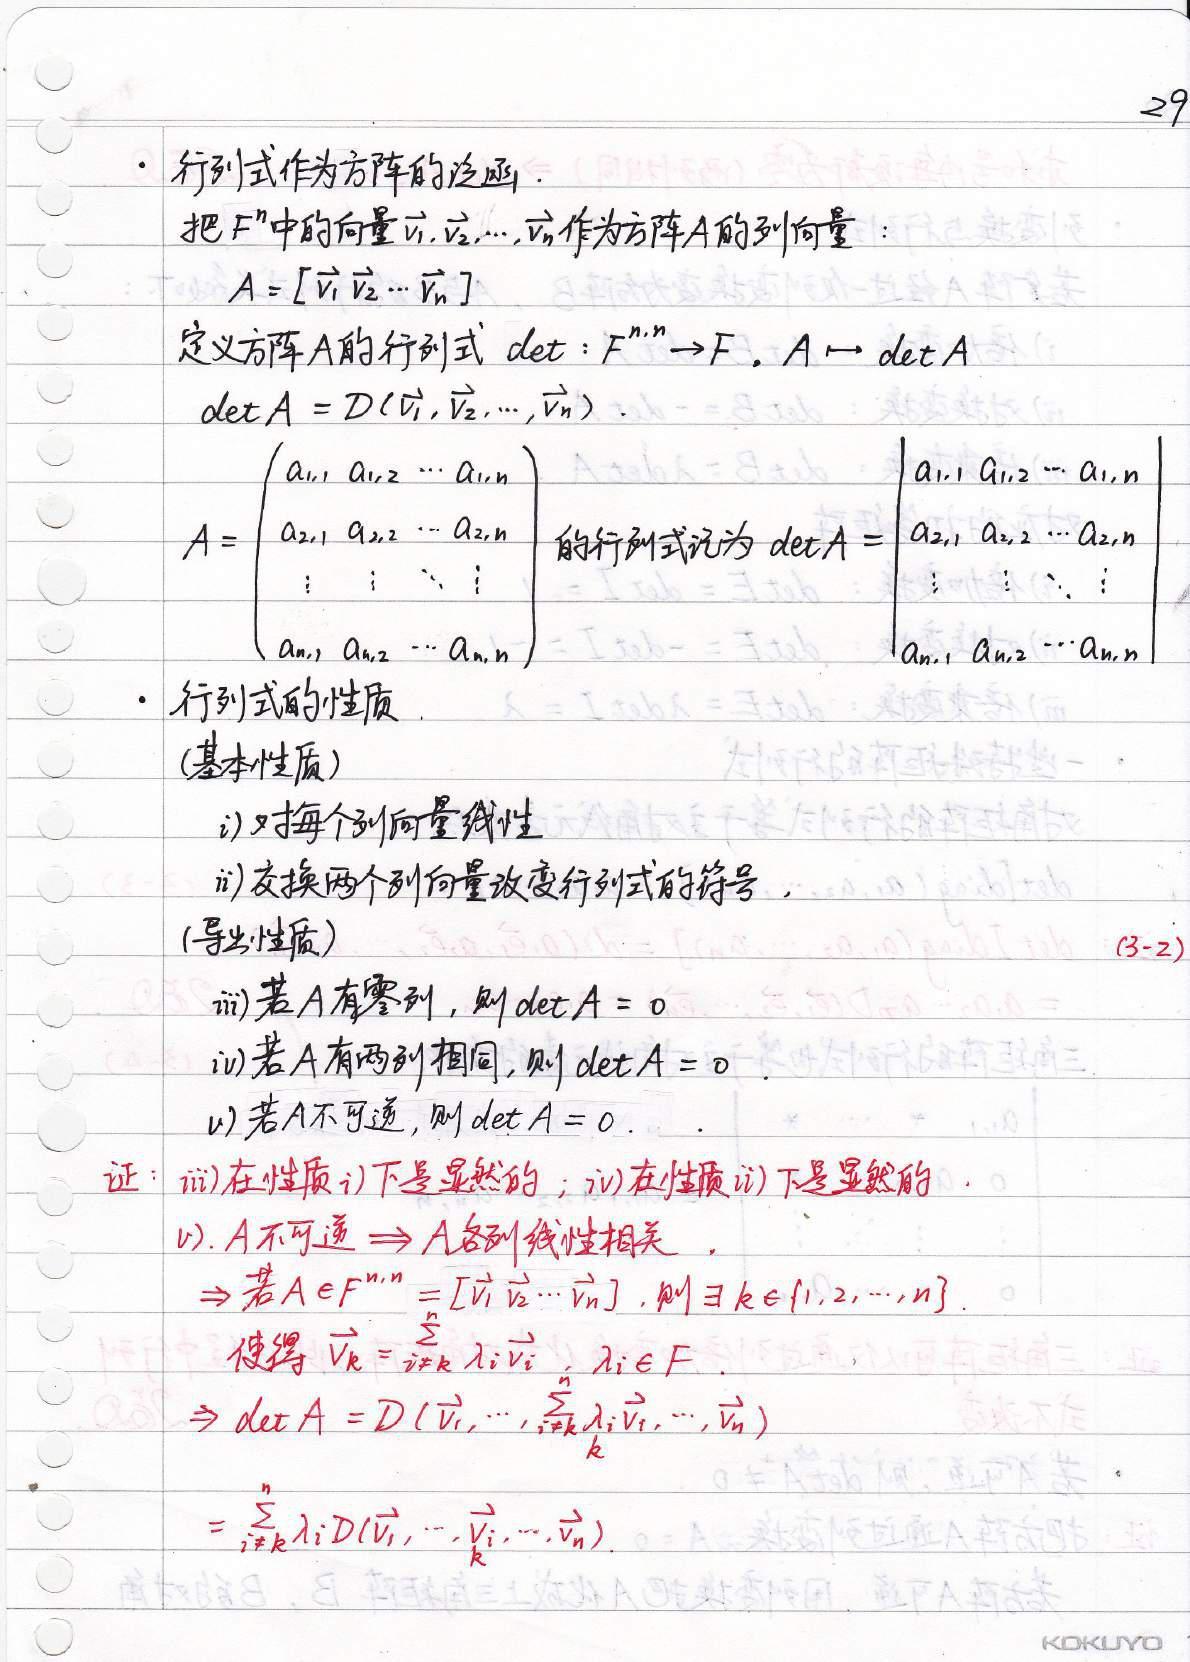 29
· 行列式作为方阵的泛函.
把 Fⁿ 中的向量 v⃗₁, v⃗₂, …, v⃗ₙ 作为方阵A的列向量:
A = [v⃗₁ v⃗₂ … v⃗ₙ]
定义方阵A的行列式 det : Fⁿ,ⁿ → F, A ↦ det A
det A = D(v⃗₁, v⃗₂, …, v⃗ₙ).
a₁,₁ a₁,₂ … a₁,ₙ a₁,₁ a₁,₂ … a₁,ₙ
A = a₂,₁ a₂,₂ … a₂,ₙ 的行列式记为 det A = a₂,₁ a₂,₂ … a₂,ₙ
⋮ ⋮ ⋱ ⋮ ⋮ ⋮ ⋱ ⋮
aₙ,₁ aₙ,₂ … aₙ,ₙ aₙ,₁ aₙ,₂ … aₙ,ₙ
· 行列式的性质.
(基本性质)
i) 对每个列向量线性
ii) 交换两个列向量改变行列式的符号.
(导出性质) (3-2)
iii) 若A有零列, 则 det A = 0
iv) 若A有两列相同, 则 det A = 0.
v) 若A不可逆, 则 det A = 0.
证: iii) 在性质 i) 下是显然的; iv) 在性质 ii) 下是显然的.
v). A不可逆 ⇒ A各列线性相关.
⇒ 若 A ∈ Fⁿ,ⁿ = [v⃗₁ v⃗₂ … v⃗ₙ], 则 ∃ k ∈ {1, 2, …, n}.
使得 v⃗ₖ = ∑ⁿᵢ≠ₖ λᵢ v⃗ᵢ, λᵢ ∈ F.
⇒ det A = D(v⃗₁, …, ∑ⁿᵢ≠ₖ λᵢ v⃗ᵢ, …, v⃗ₙ)
k
= ∑ⁿᵢ≠ₖ λᵢ D(v⃗₁, …, v⃗ᵢ, …, v⃗ₙ).
k
KOKUYO